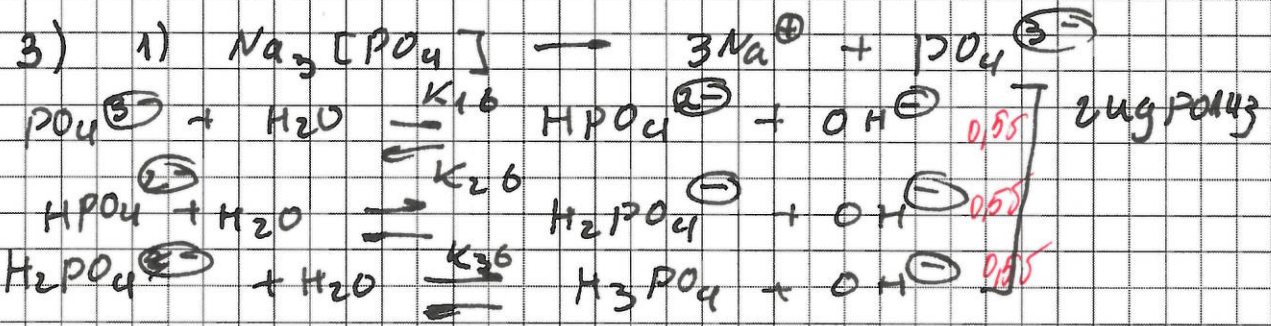 3) 1) Na₃[PO₄] → 3Na⊕ + PO₄³⁻
PO₄³⁻ + H₂O ⇌ K₁б HPO₄²⁻ + OH⁻ 0,5б гидролиз
HPO₄²⁻ + H₂O ⇌ K₂б H₂PO₄⁻ + OH⁻ 0,5б
H₂PO₄⁻ + H₂O ⇌ K₃б H₃PO₄ + OH⁻ 0,5б